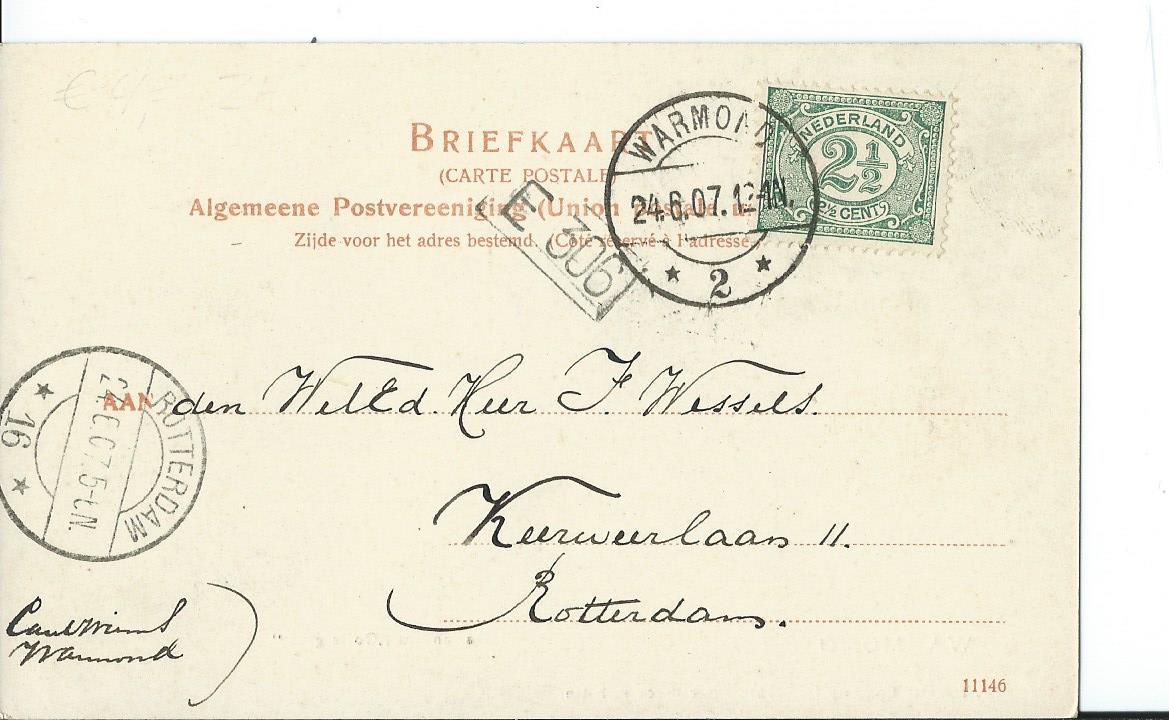 BRIEFKAART
(CARTE POSTALE
Algemeene Postvereeniging (Union
Zijde voor het adres bestemd. (Côté réservé à l'adresse
WARMOND
24.6.07.12-1N.
2
NEDERLAND
2½
2½ CENT
E 306
ROTTERDAM
24.6.07.5-6N.
16
AAN den WelEd. Heer J. Wessels.
Keerweerlaan 11.
Rotterdam.
Warmond
11146